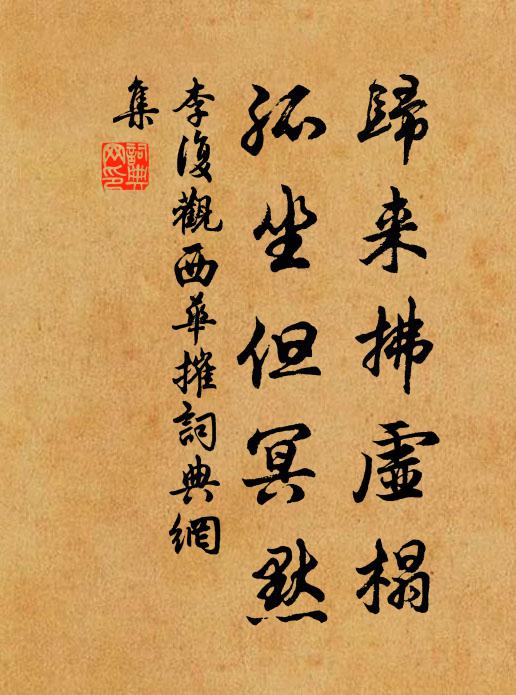 歸来拂虛榻
孤坐但冥默
李復觀西華摧詞典網
集
詞典網印